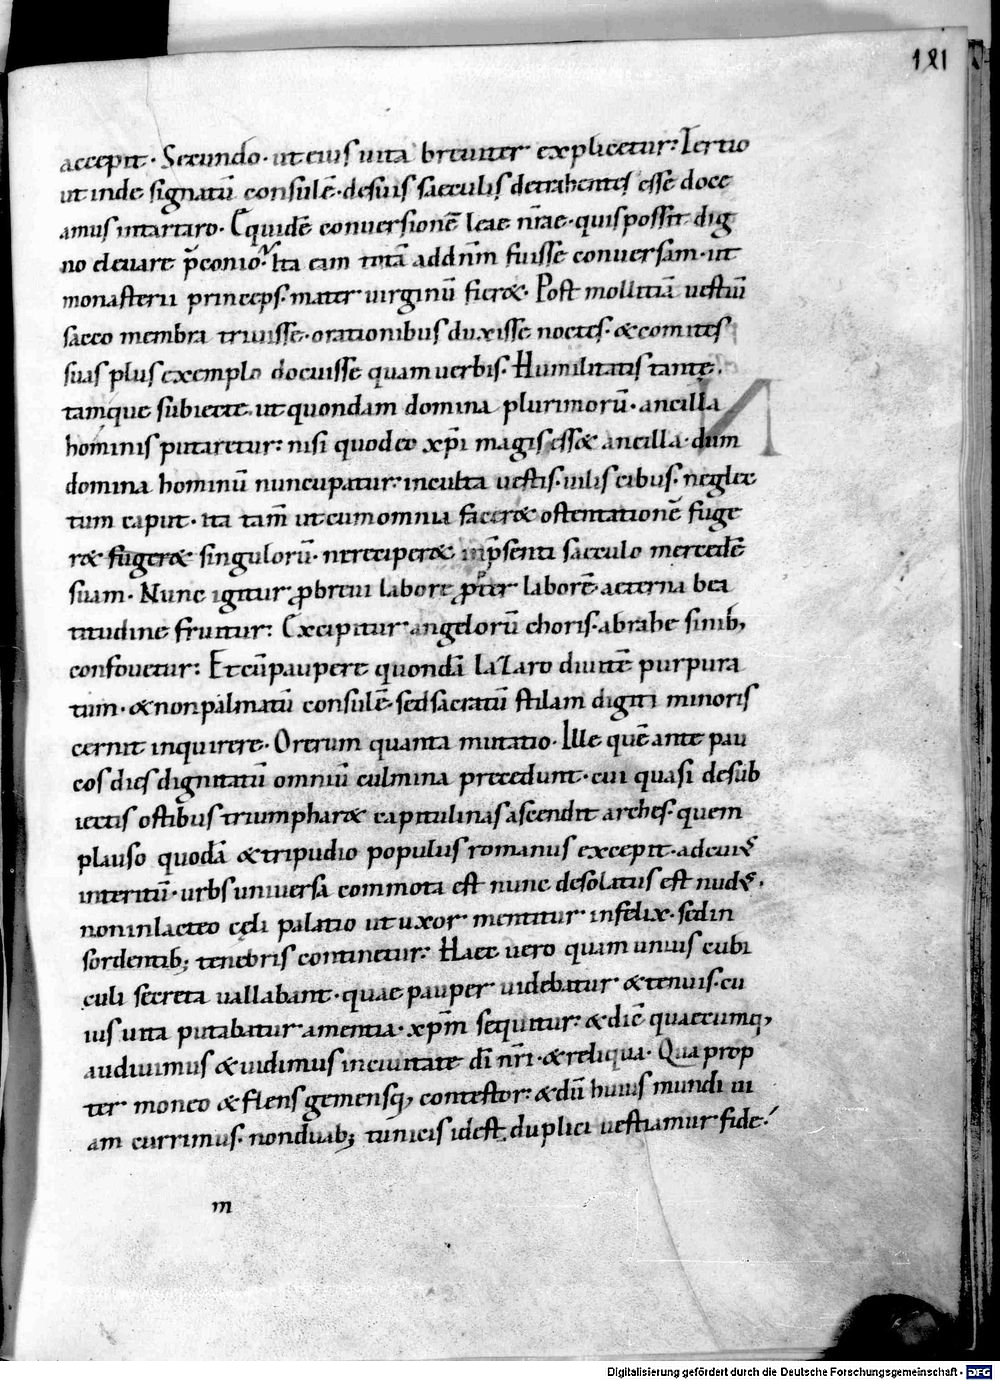 121
accepit· Secundo· ut eius uita breuiter explicetur: Tertio
ut inde signatū consulē· de suis saeculis detrahentes esse doce
amus in tartaro· Equidē conuersionē leae nr̄ae· quis possit dig
no eleuare p̄conio· Ita eam totā ad dn̄m fuisse conuersam· ut
monasterii princeps· mater uirginū fier&· Post mollitiā uestiū
sacco membra triuisse· orationibus duxisse noctes· & comites
suas plus exemplo docuisse quam uerbis· Humilitatis tantę·
tamque subiecte· ut quondam domina plurimorū· ancilla
hominis putaretur: nisi quod eo xp̄i magis ess& ancilla· dum
domina hominū nuncupatur: inculta uestis· uilis cibus· neglec
tum caput· ita tam̄ ut cum omnia facer& ostentationē fuge
r& fuger& singulorū· ne reciper& in p̄senti saeculo mercedē
suam· Nunc igitur ꝓ breui labore ꝓpter laborē aeterna bea
titudine fruitur: Excipitur angelorū choris· abrahe sinib;
confouetur: Et cū paupere quondā lazaro diuitē purpura
tum· & non palmatū consulē· sed sacratū stilam digiti minoris
cernit inquirere· O rerum quanta mutatio· Ille quē ante pau
cos dies dignitatū omniū culmina precedunt· cui quasi de sub
iectis ostibus triumphar& capitulinas ascendit arches· quem
plauso quodā & tripudio populus romanus excepit· ad cuiꝰ
interitū· urbs uniuersa commota est nunc desolatus est nudꝰ·
non in lacteo cęli palatio ut uxor mentitur infelix· sed in
sordentib; tenebris continetur: Haec uero quam unius cubi
culi secreta uallabant· quae pauper uidebatur & tenuis· cu
ius uita putabatur amentia· xp̄m sequitur: & diē quaecumq;
audiuimus & uidimus in ciuitate dī nr̄i· & reliqua· Qua prop
ter moneo & flens gemensq; contestor: & dū huius mundi ui
am currimus· non duab; tunicis id est duplici uestiamur fide·
m
Digitalisierung gefördert durch die Deutsche Forschungsgemeinschaft · DFG